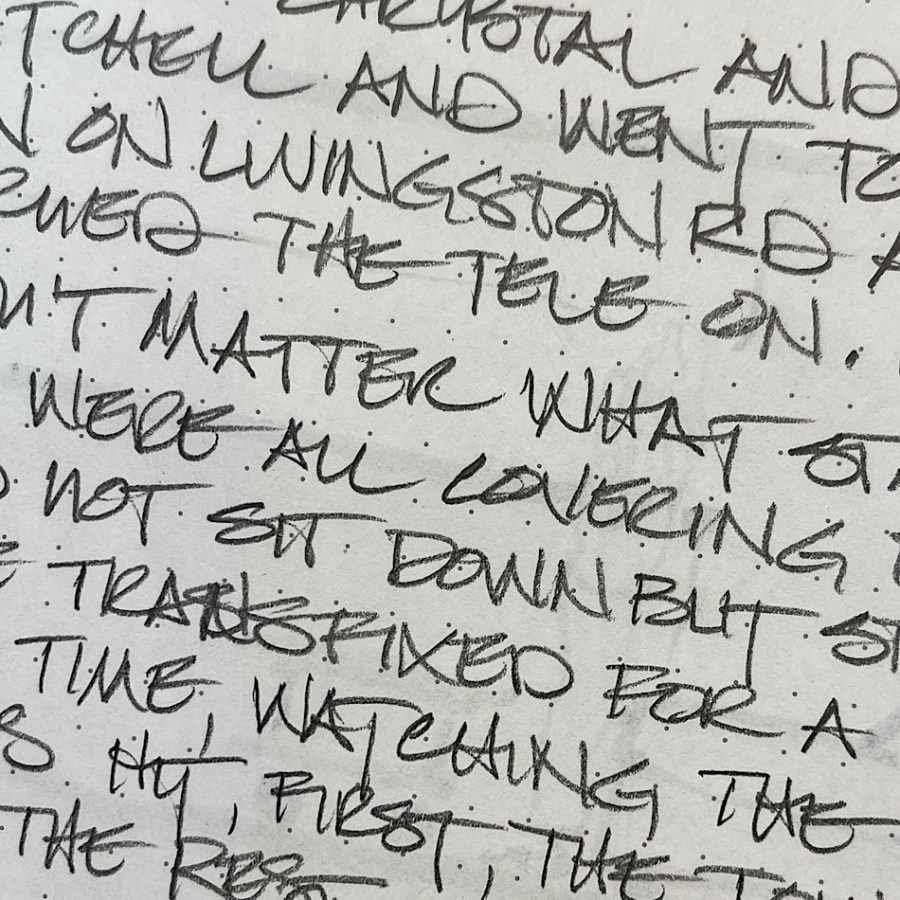 AND
TCHELL AND WENT TO
N ON LIVINGSTON RD A
THE TELE ON.
N'T MATTER WHAT STA
WERE ALL COVERING T
NOT SIT DOWN BUT ST
E TRANSFIXED FOR A
TIME, WATCHING THE
S HIT, FIRST, THE TOW
THE RES